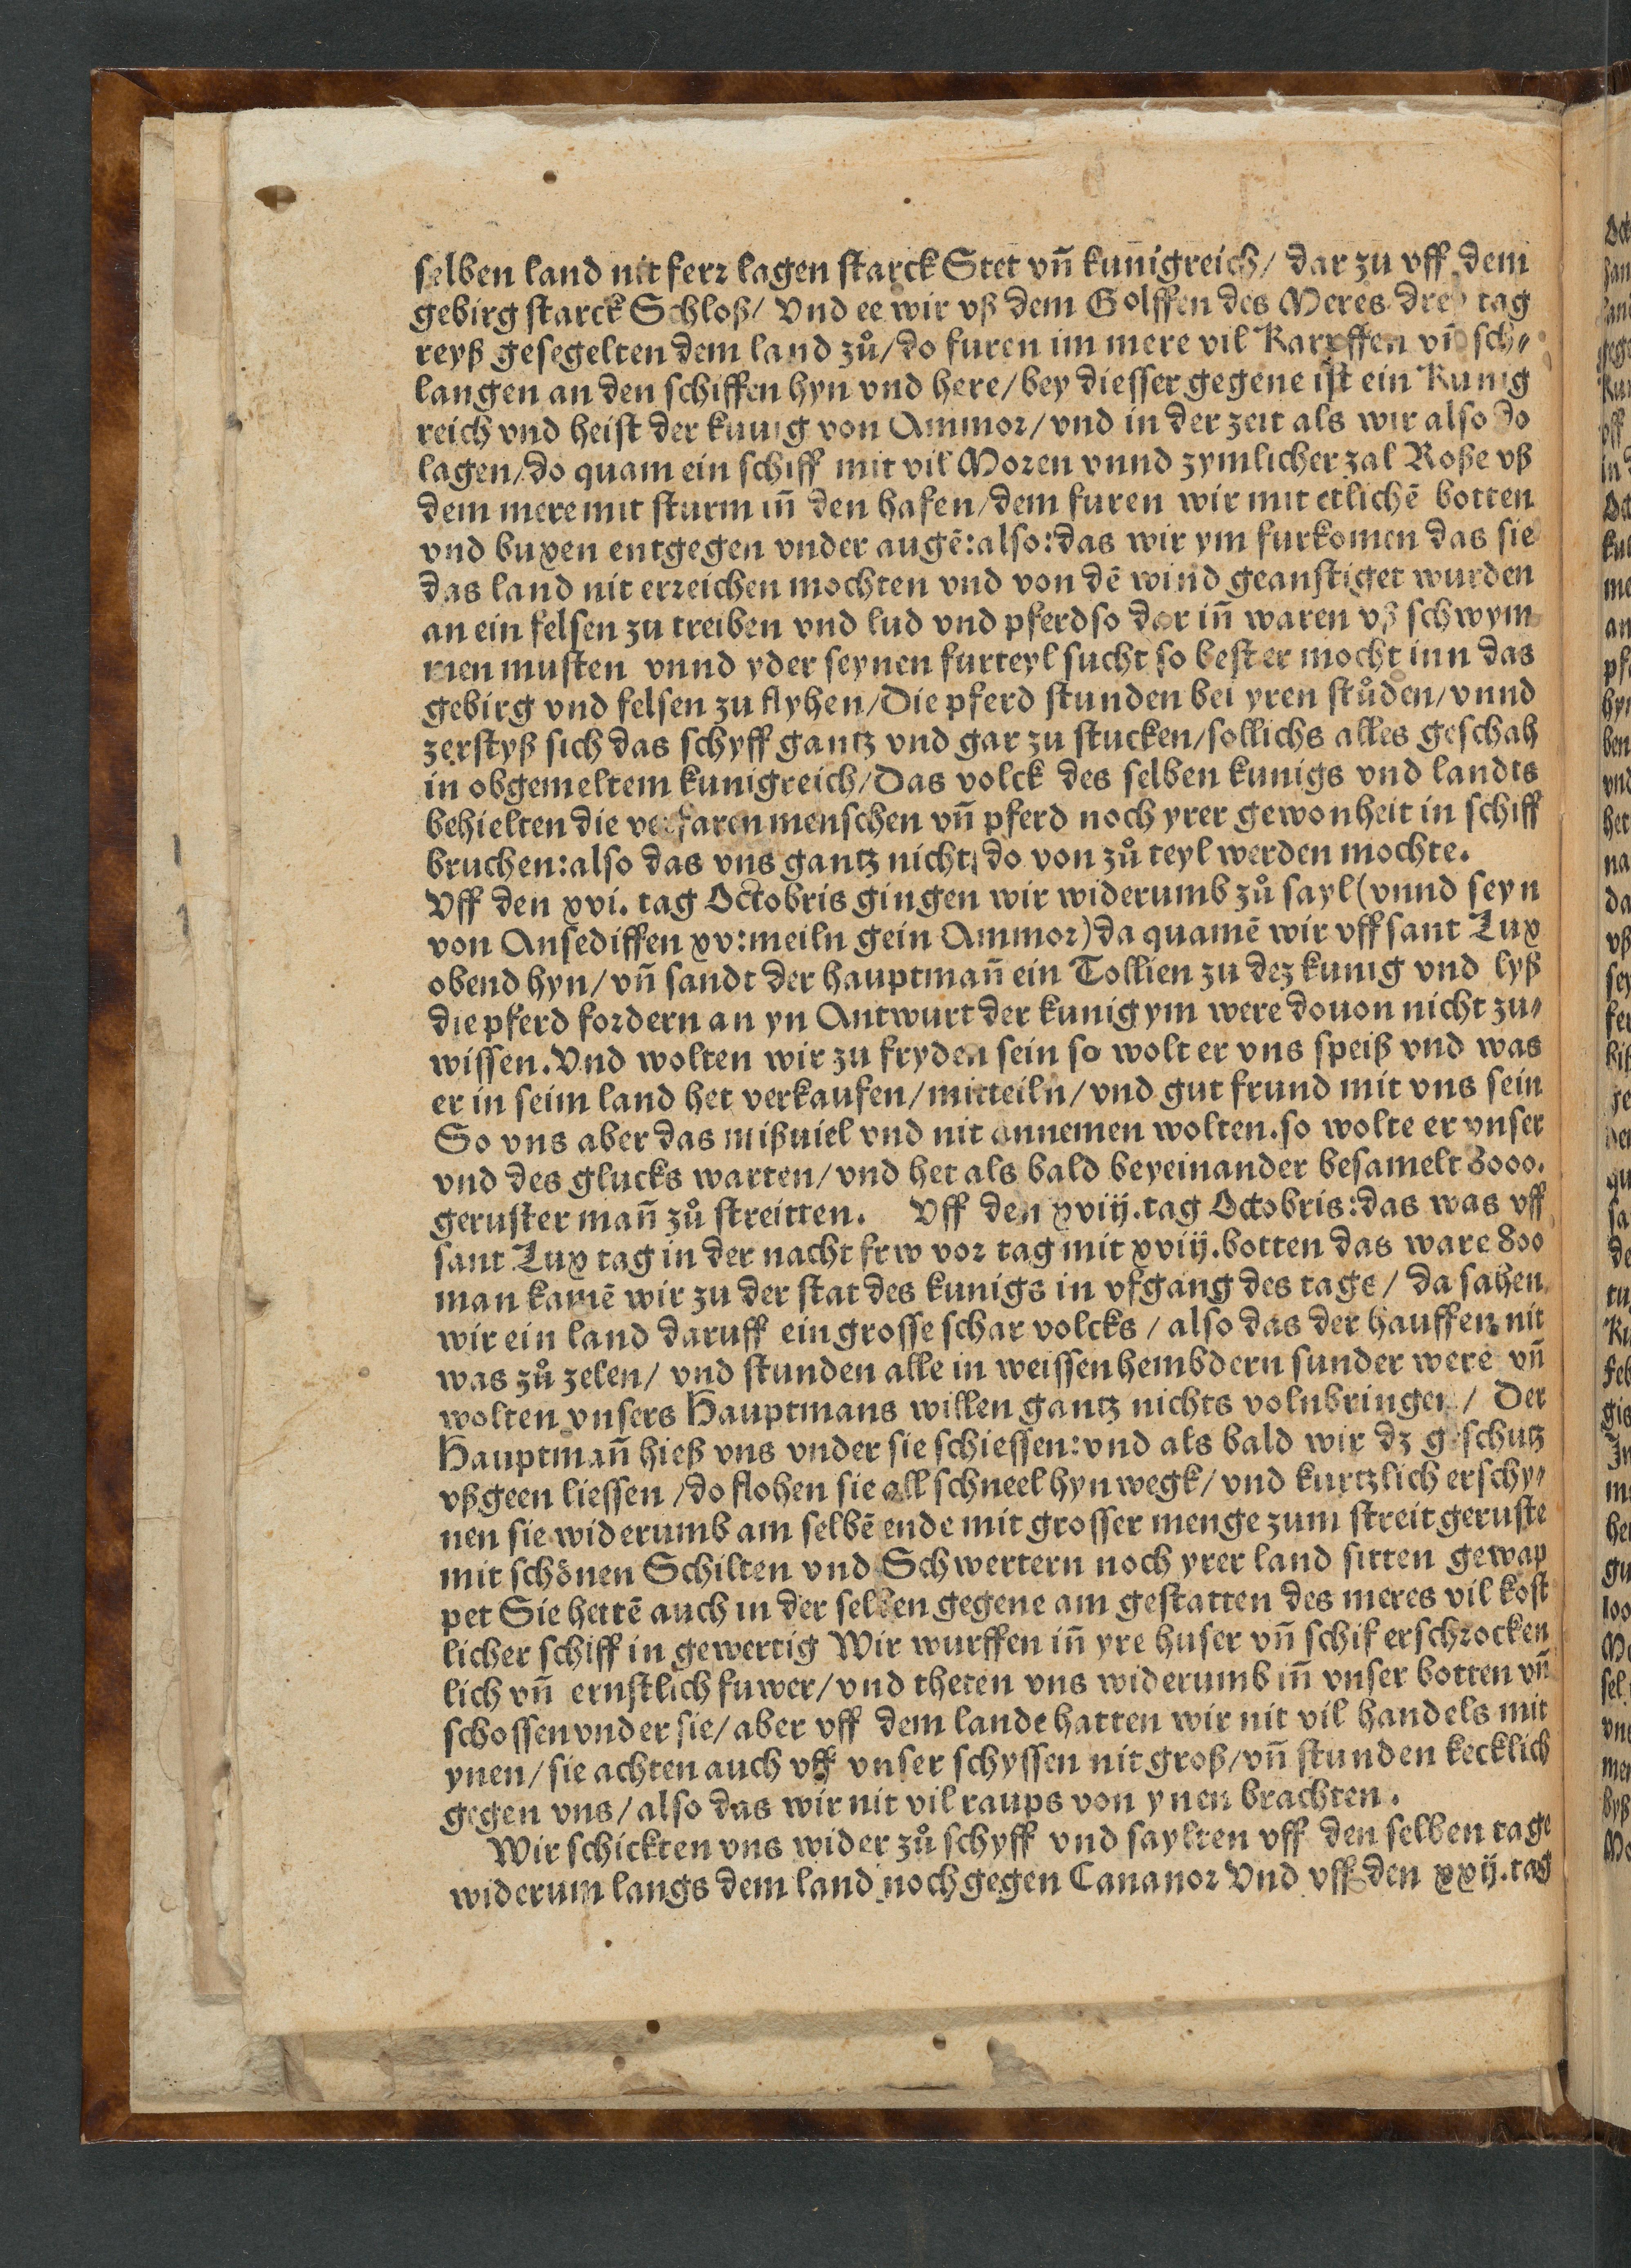 selben land nit ferr lagen starck Stet vn̄ kunigreich/ dar zu vff dem
gebirg starck Schloß/ Vnd ee wir vß dem Golffen des Meres drey tag
reyß gesegelten dem land zů/do furen im mere vil Karpffen vn̄ sch⸗
langen an den schiffen hyn vnd here/bey diesser gegene ist ein Kunig
reich vnd heist der kunig von Ammor/vnd in der zeit als wir also do
lagen/do quam ein schiff mit vil Moren vnnd zymlicher zal Roße vß
dem mere mit sturm in̄ den hafen/dem furen wir mit etlichē botten
vnd buxen entgegen vnder augē:also:das wir ym furkomen das sie
das land nit erreichen mochten vnd von dē wind geanstiget wurden
an ein felsen zu treiben vnd lud vnd pferd so dar in̄ waren vß schwym
men musten vnnd yder seynen furteyl sucht so best er mocht inn das
gebirg vnd felsen zu flyhen/Die pferd stunden bei yren stůden/vnnd
zerstyß sich das schyff gantz vnd gar zu stucken/sollichs alles geschah
in obgemeltem kunigreich/Das volck des selben kunigs vnd landts
behielten die verfaren menschen vn̄ pferd noch yrer gewonheit in schiff
bruchen:also das vns gantz nichts do von zů teyl werden mochte.
Vff den xvi. tag Octobris gingen wir widerumb zů sayl (vnnd seyn
von Ansediffen xv:meiln gein Ammor) da quamē wir vff sant Lux
obend hyn/vn̄ sandt der hauptman̄ ein Tollien zu dez kunig vnd lyß
die pferd fordern an yn Antwurt der kunig ym were douon nicht zu⸗
wissen. Vnd wolten wir zu fryden sein so wolt er vns speiß vnd was
er in seim land het verkaufen/mitteiln/vnd gut frund mit vns sein
So vns aber das mißuiel vnd nit annemen wolten. so wolte er vnser
vnd des glucks warten/vnd het als bald beyeinander besamelt 8000.
geruster man̄ zů streitten. Vff den xviij. tag Octobris:das was vff
sant Lux tag in der nacht frw vor tag mit xviij. botten das ware 800
man kamē wir zu der stat des kunigs in vfgang des tage/ da sahen
wir ein land daruff ein grosse schar volcks/also das der hauffen nit
was zů zelen/ vnd stunden alle in weissen hembdern sunder were vn̄
wolten vnsers Hauptmans willen gantz nichts volnbringen/ Der
Hauptman̄ hieß vns vnder sie schiessen:vnd als bald wir dz geschutz
vßgeen liessen/do flohen sie all schneel hyn wegk/vnd kurtzlich erschy⸗
nen sie widerumb am selbē ende mit grosser menge zum streit geruste
mit schönen Schilten vnd Schwertern noch yrer land sitten gewap
pet Sie hettē auch in der selben gegene am gestatten des meres vil kost
licher schiff in gewertig Wir wurffen in̄ yre huser vn̄ schif erschrocken
lich vn̄ ernstlich fuwer/vnd theten vns widerumb in̄ vnser botten vn̄
schossen vnder sie/aber vff dem lande hatten wir nit vil handels mit
ynen/sie achten auch vff vnser schyssen nit groß/vn̄ stunden kecklich
gegen vns/also das wir nit vil raups von ynen brachten.
Wir schickten vns wider zů schyff vnd saylten vff den selben tage
widerum langs dem land noch gegen Cananor Vnd vff den xxij. tag